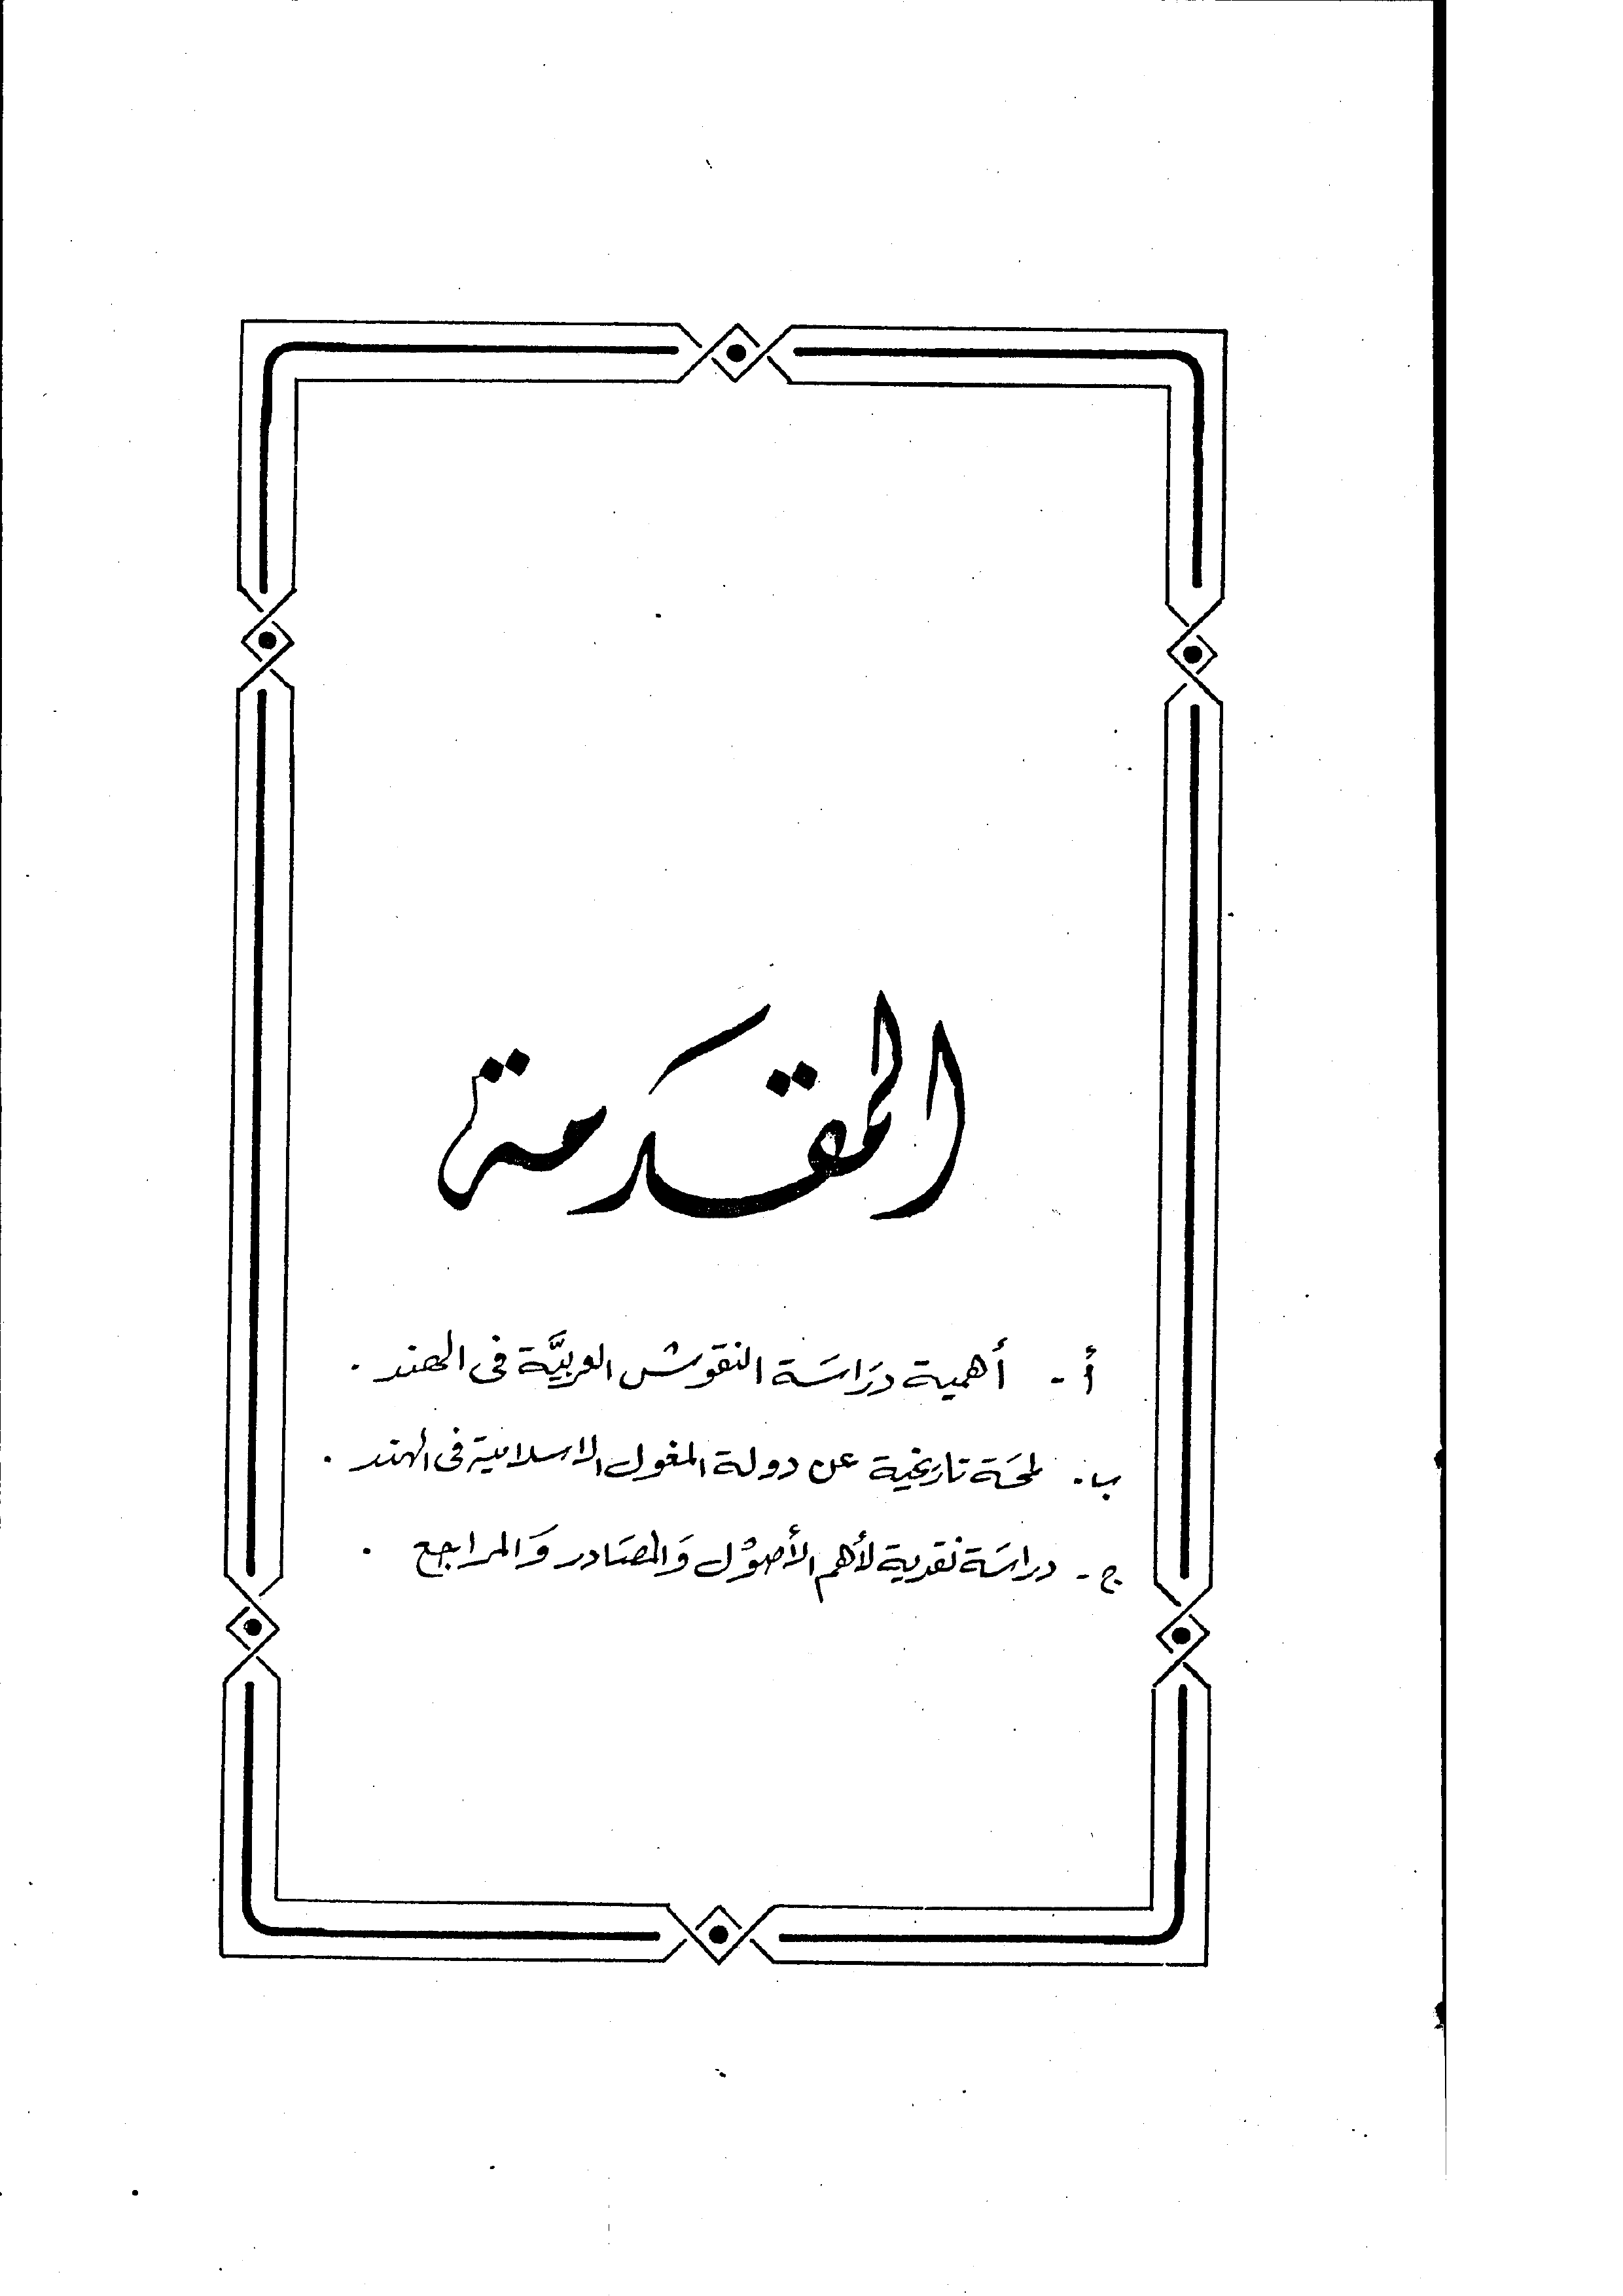 المقدمة
أ - أهمية دَرَاسَة النقوش العربيَّة فى الهند .
ب - لمحَة تاريخية عن دولة المغول الاسلامية فى الهند .
ج - دراسَة نقدية لأهم الأصوُل وَالمصَادر وَالمراجع .